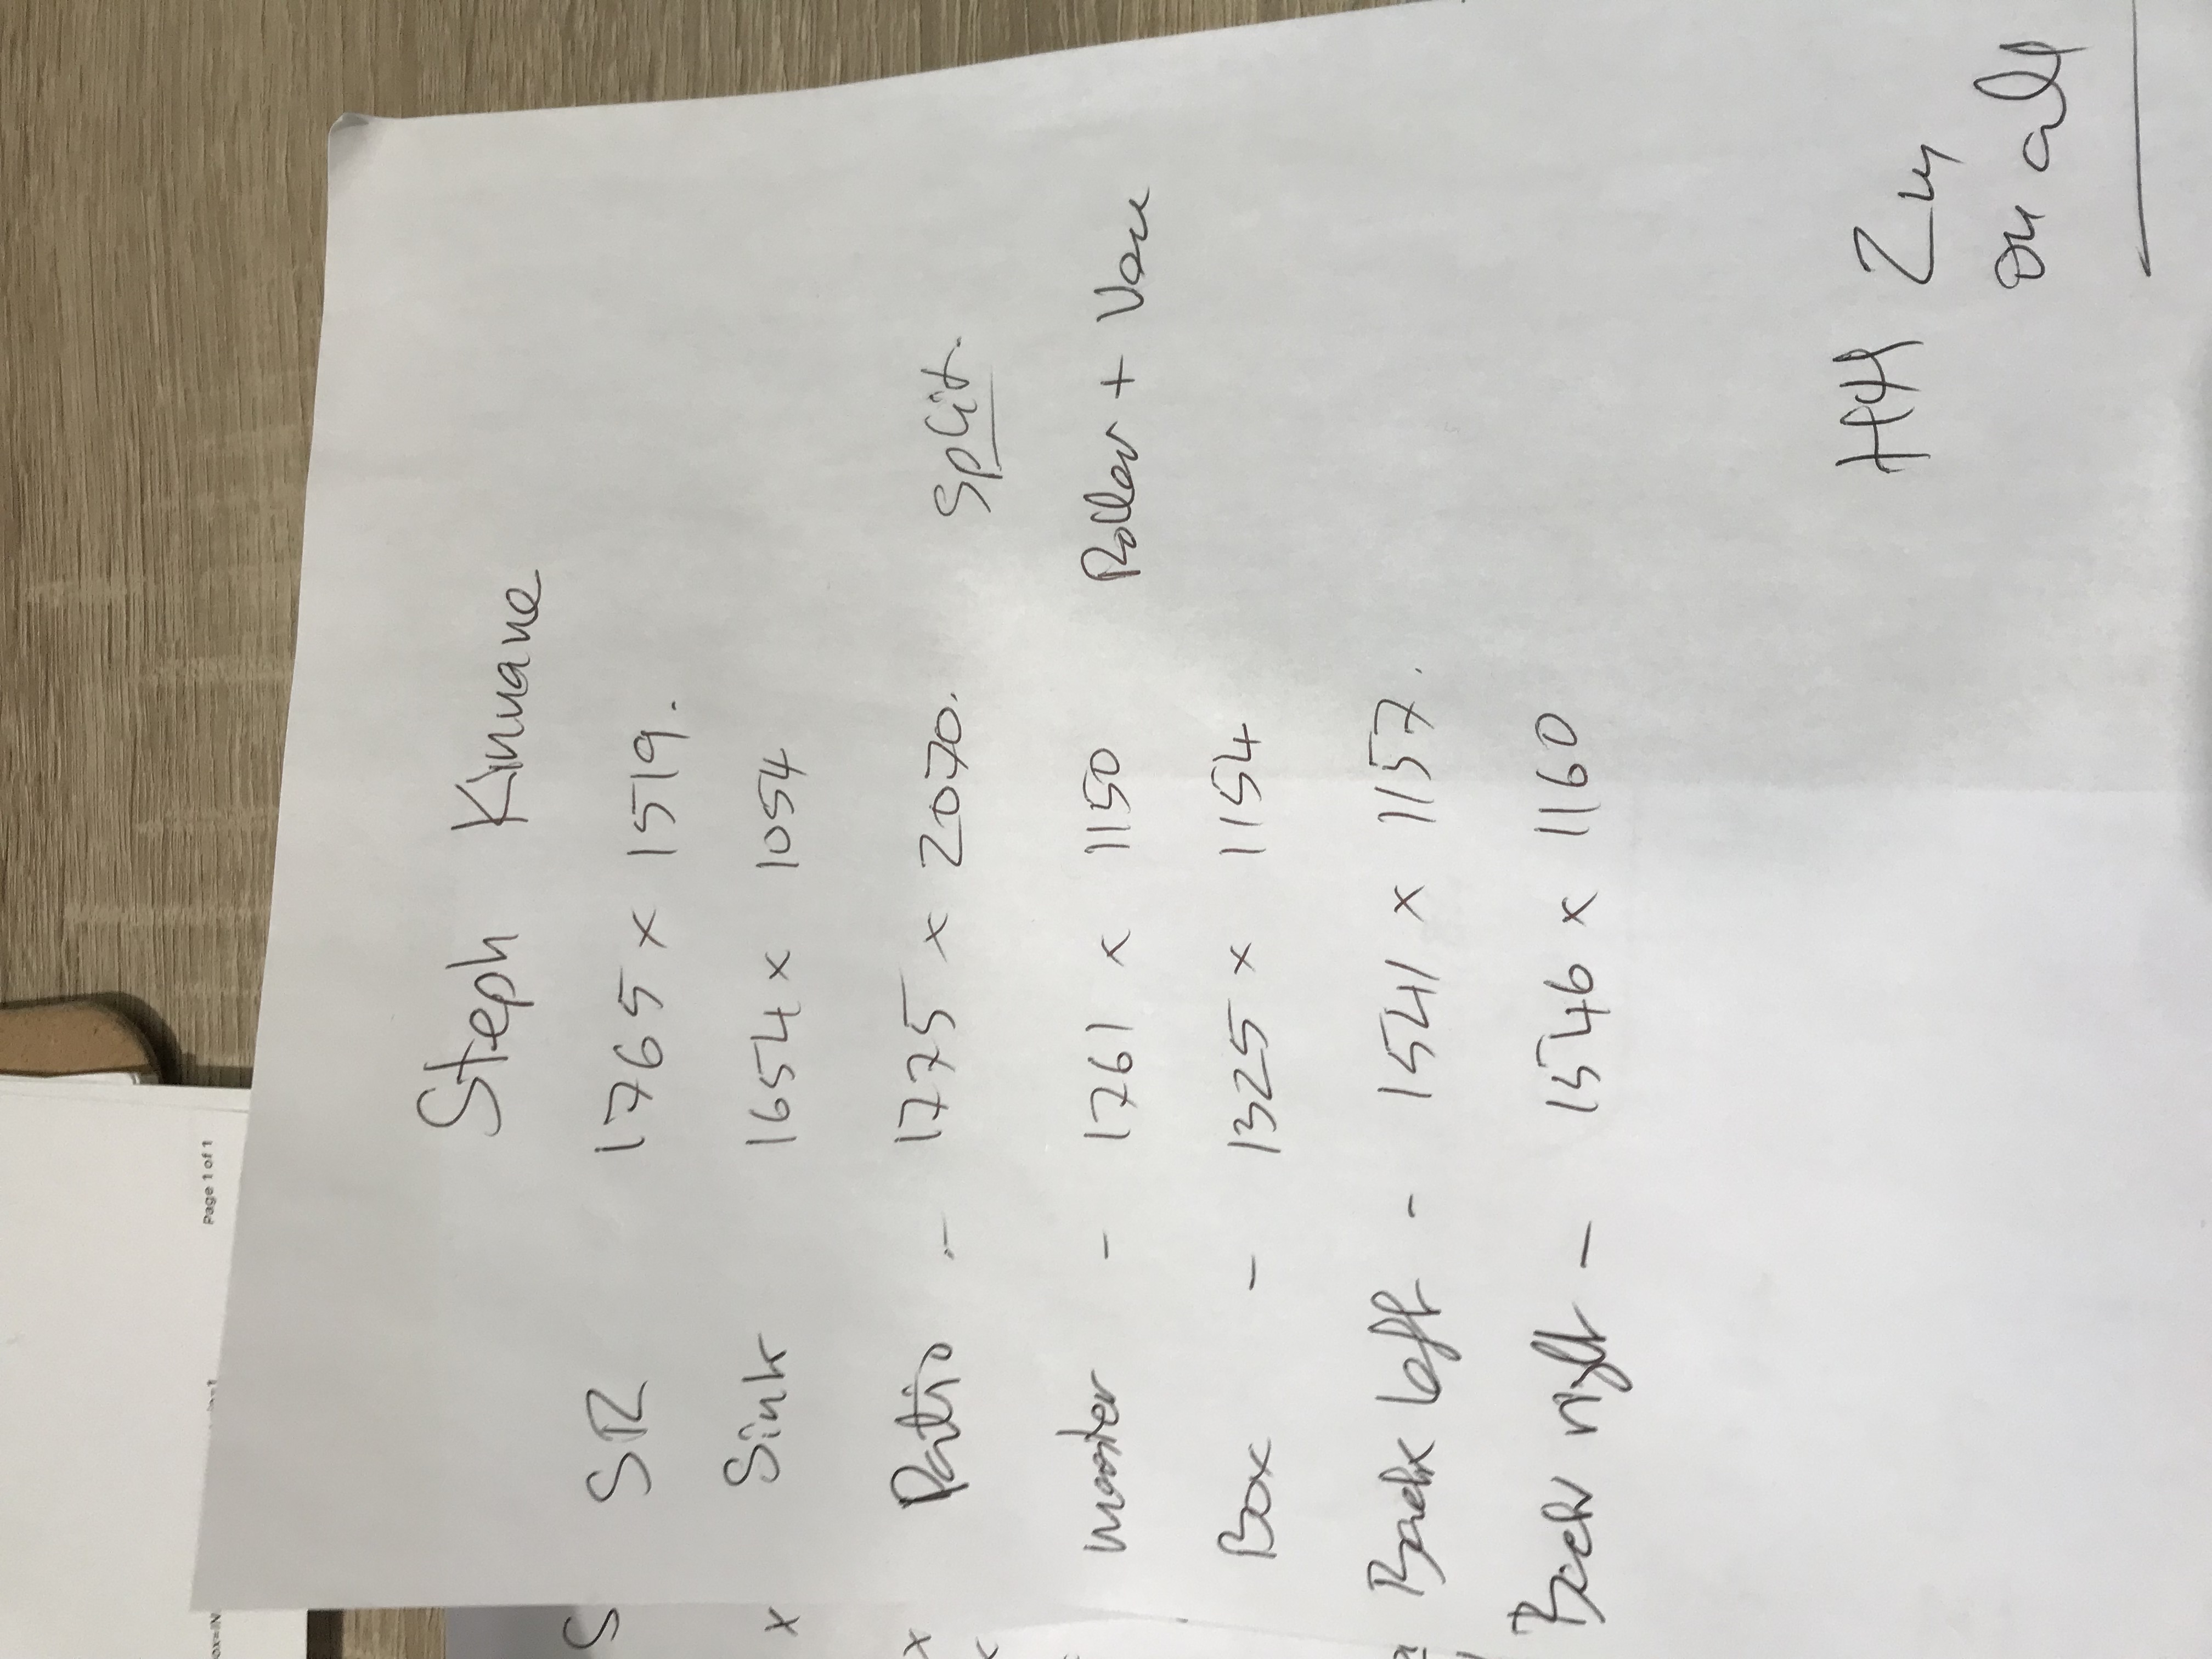 Steph Kinnane
SR 1765 x 1519.
Sink 1654 x 1054
Patio - 1775 x 2070. Split.
master - 1761 x 1150 Roller + Van
Box - 1325 x 1154
Back left - 1541 x 1157.
Back right - 1546 x 1160
on all
Page 1 of 1